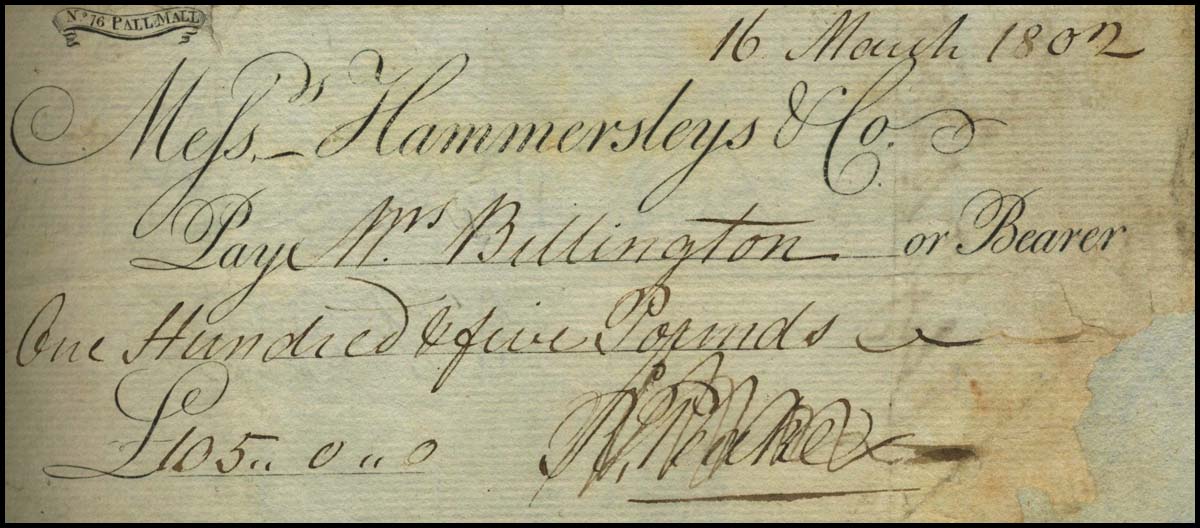 No 76 PALL-MALL
16 March 1802
Meſs.rs Hammersleys & Co.
Pay Mrs Billington or Bearer
One Hundred & five Pounds
£105 .. 0 .. 0 R. Peake